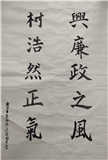 興廉政之風
村浩然正氣